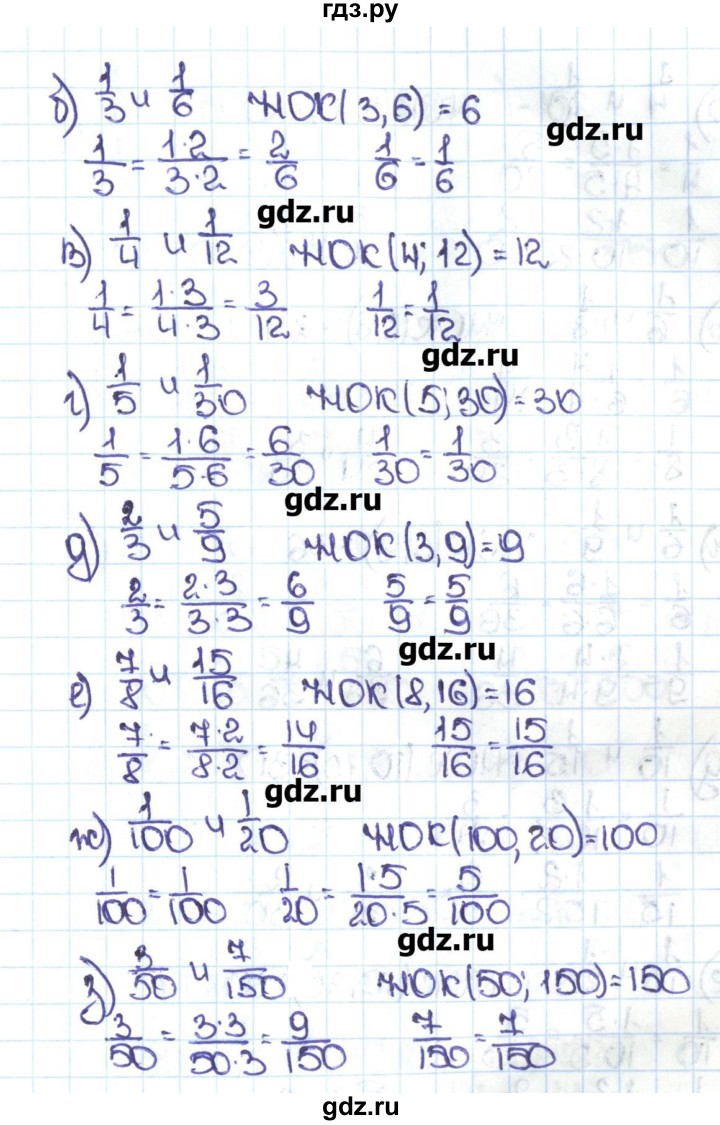 гдз.ру
б) 1/3 и 1/6 НОК(3,6) = 6
gdz.ru
1/3 = 1·2/3·2 = 2/6 1/6 = 1/6
gdz.ru
в) 1/4 и 1/12 НОК(4; 12) = 12
1/4 = 1·3/4·3 = 3/12 1/12 = 1/12
gdz.ru
г) 1/5 и 1/30 НОК(5; 30) = 30
1/5 = 1·6/5·6 = 6/30 1/30 = 1/30
gdz.ru
д) 2/3 и 5/9 НОК(3,9) = 9
2/3 = 2·3/3·3 = 6/9 5/9 = 5/9
gdz.ru
е) 7/8 и 15/16 НОК(8,16) = 16
7/8 = 7·2/8·2 = 14/16 15/16 = 15/16
gdz.ru
ж) 1/100 и 1/20 НОК(100,20) = 100
1/100 = 1/100 1/20 = 1·5/20·5 = 5/100
gdz.ru
з) 3/50 и 7/150 НОК(50; 150) = 150
3/50 = 3·3/50·3 = 9/150 7/150 = 7/150
gdz.ru